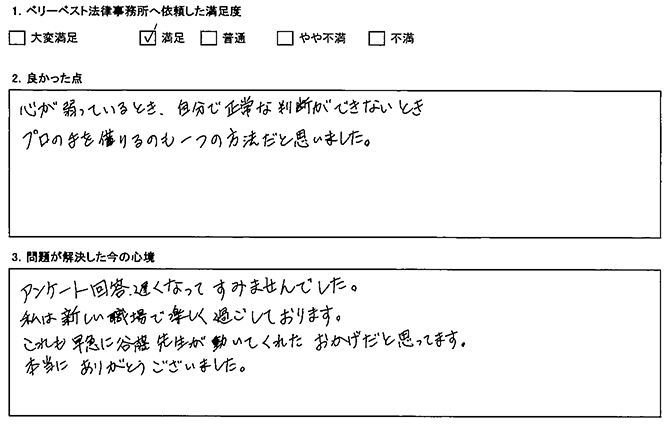 1. ベリーベスト法律事務所へ依頼した満足度
□ 大変満足 ☑ 満足 □ 普通 □ やや不満 □ 不満
2. 良かった点
心が弱っているとき、自分で正常な判断ができないとき
プロの手を借りるのも一つの方法だと思いました。
3. 問題が解決した今の心境
アンケート回答、遅くなって すみませんでした。
私は新しい職場で楽しく過ごしております。
これも早急に谷 先生が動いてくれた おかげだと思ってます。
本当に ありがとうございました。